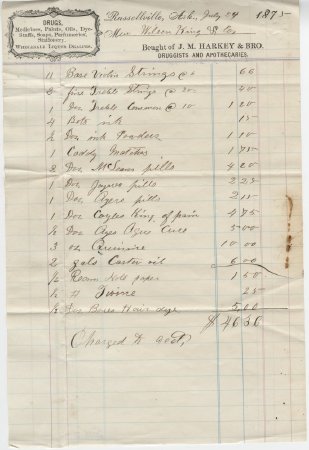 DRUGS,
Medicines, Paints, Oils, Dye-
Stuffs, Soaps, Perfumeries,
Stationery.
WHOLESALE LIQUOR DEALERS.
Russellville, Ark., July 24 1875
Messrs Wilson King & Co
Bought of J. M. HARKEY & BRO.
DRUGGISTS AND APOTHECARIES.
11 Bass Violin Strings @ 6 66
2 fine Treble Strings @ 20 40
1 Doz Treble Common @ 10 1 20
4 Bots ink 15
½ Doz ink Powders 1 10
1 Caddy Matches 1 75
2 Doz McLeans pills 4 20
1 Doz Jaynes pills 2 25
1 Doz Ayers pills 2 15
1 Doz Coyles King of pain 4 75
½ Doz Ayers Ague Cure 5 00
3 oz Quinine 10 00
2 gals Castor oil 6 00
½ Ream Note paper 1 50
½ # Twine 25
½ Doz Hair dye 5 00
$ 46 36
Charged to acct,